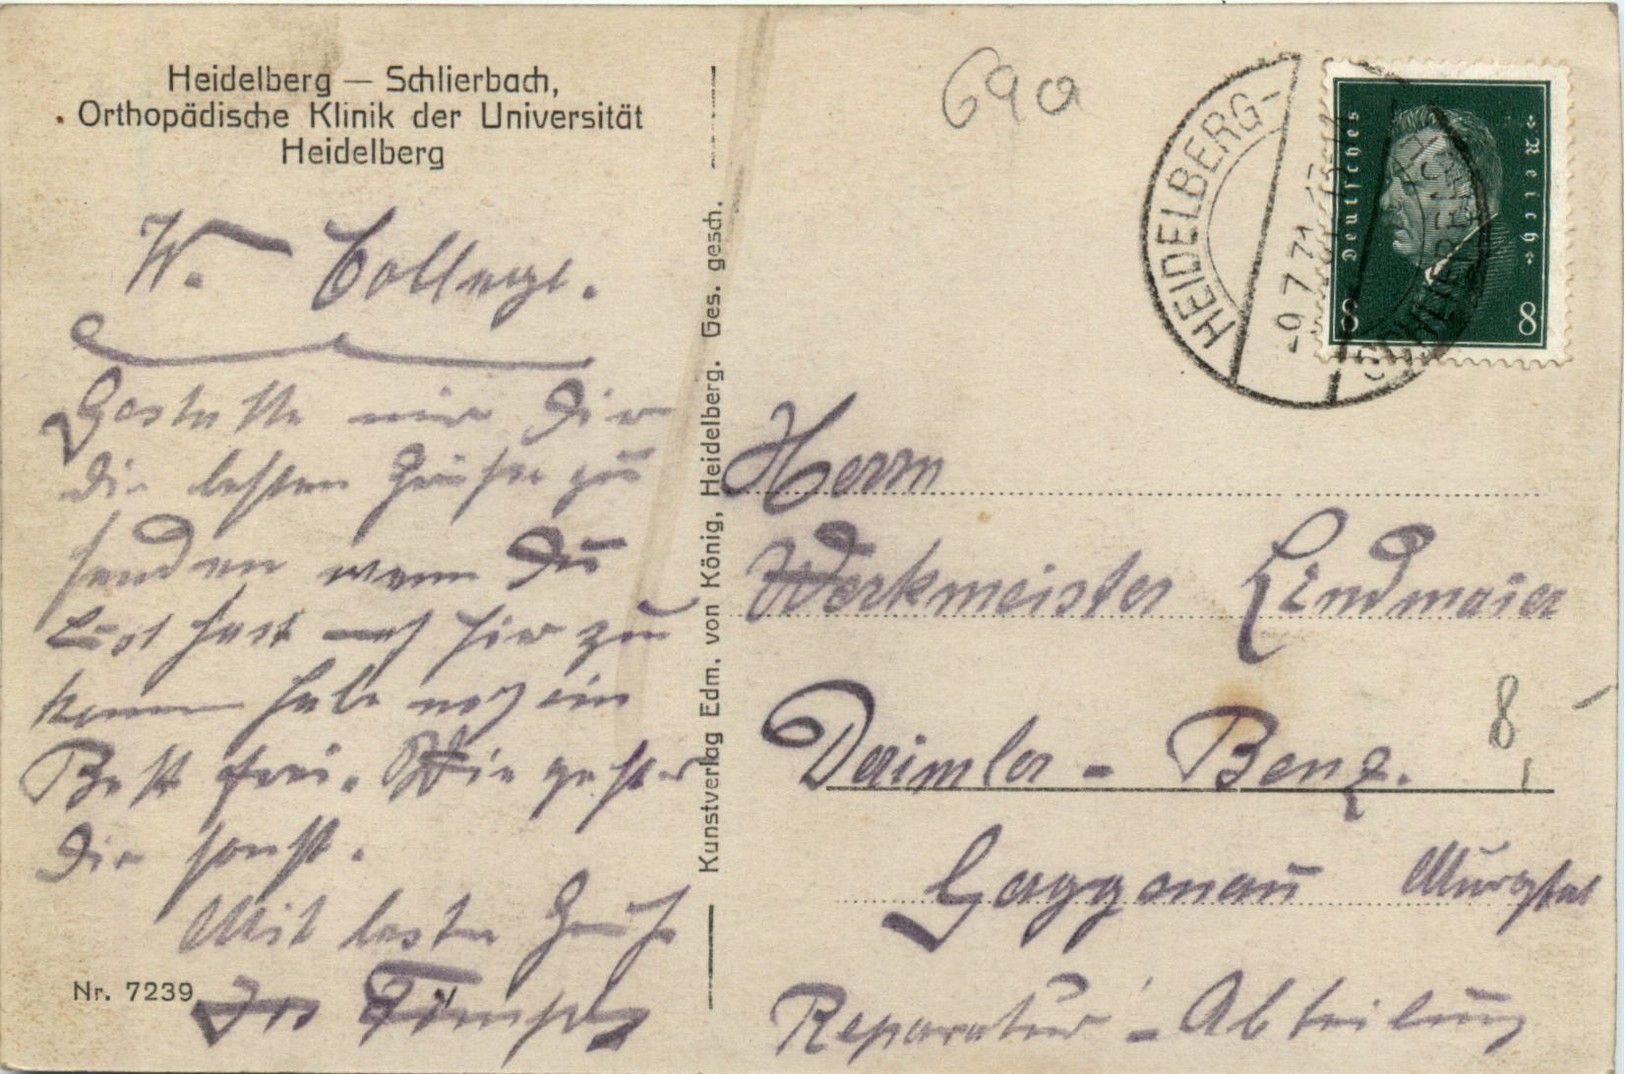 Heidelberg — Schlierbach,
Orthopädische Klinik der Universität
Heidelberg
W. College.
Gestatte mir Dir
die besten Grüße zu
senden wenn Du
Lust hast auch hier zu
kommen habe noch ein
Bett frei. Wie geht es
Dir sonst.
Mit besten Gruß
Jos
Nr. 7239
Kunstverlag Edm. von König, Heidelberg. Ges. gesch.
69a
HEIDELBERG-
SCHLIERBACH
-9.7.31
Deutsches Reich
8 8
Herrn
Werkmeister Lindmaier
Daimler - Benz.
8
Gaggenau Murgtal
Reparatur - Abteilung